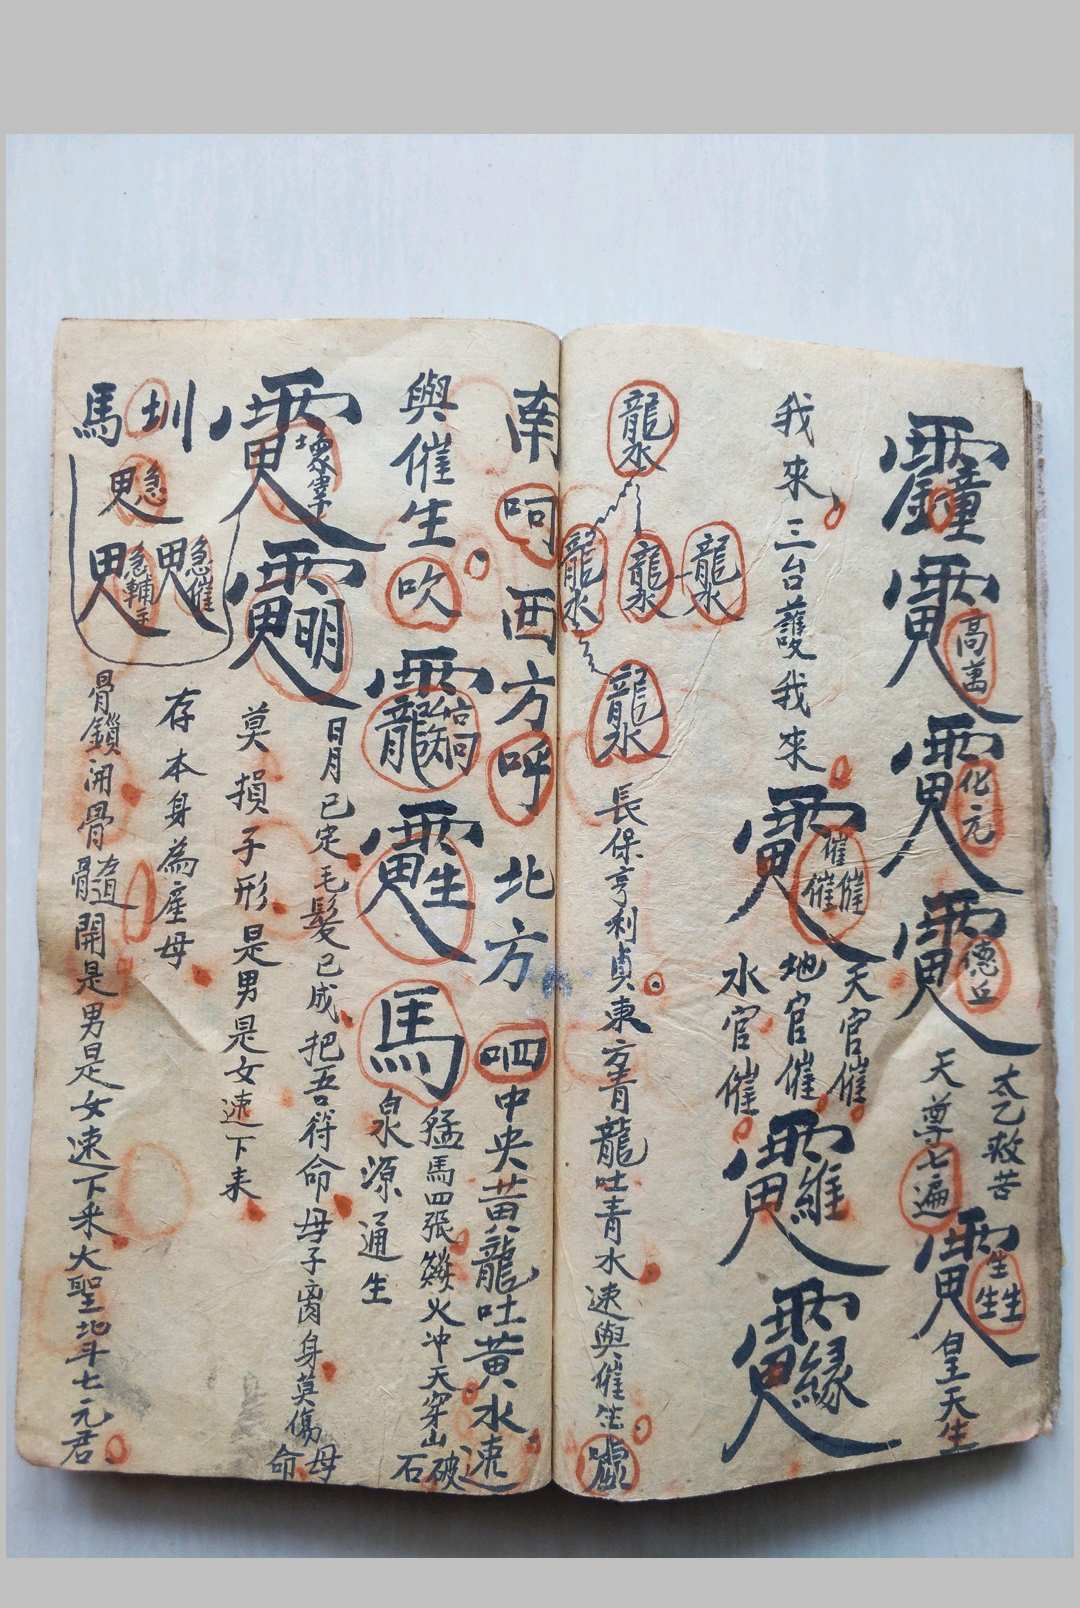 高萬
化元
德丘
太乙救苦
天尊七遍
生生生
皇天生
我來三台護我來
催催催
天官催
地官催
水官催
龍水
龍水
龍水
龍水
龍水
長保亨利貞東方青龍吐青水速與催生
南呵西方呼北方呬中央黃龍吐黃水速
與催生吹
馬
猛馬四張
火冲天穿山破石
泉源通生
日月已定毛髮已成把吾符命母子离身莫傷母命
莫損子形是男是女速下来
圳
馬
急
急催
急輔
存本身為產母
骨鎖開骨髓開是男是女速下来大聖北斗七元君